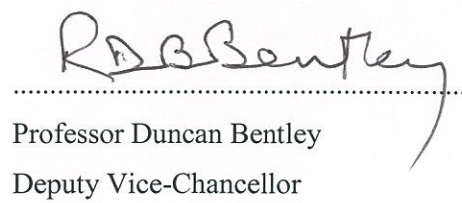 RDBBentley
Professor Duncan Bentley
Deputy Vice-Chancellor